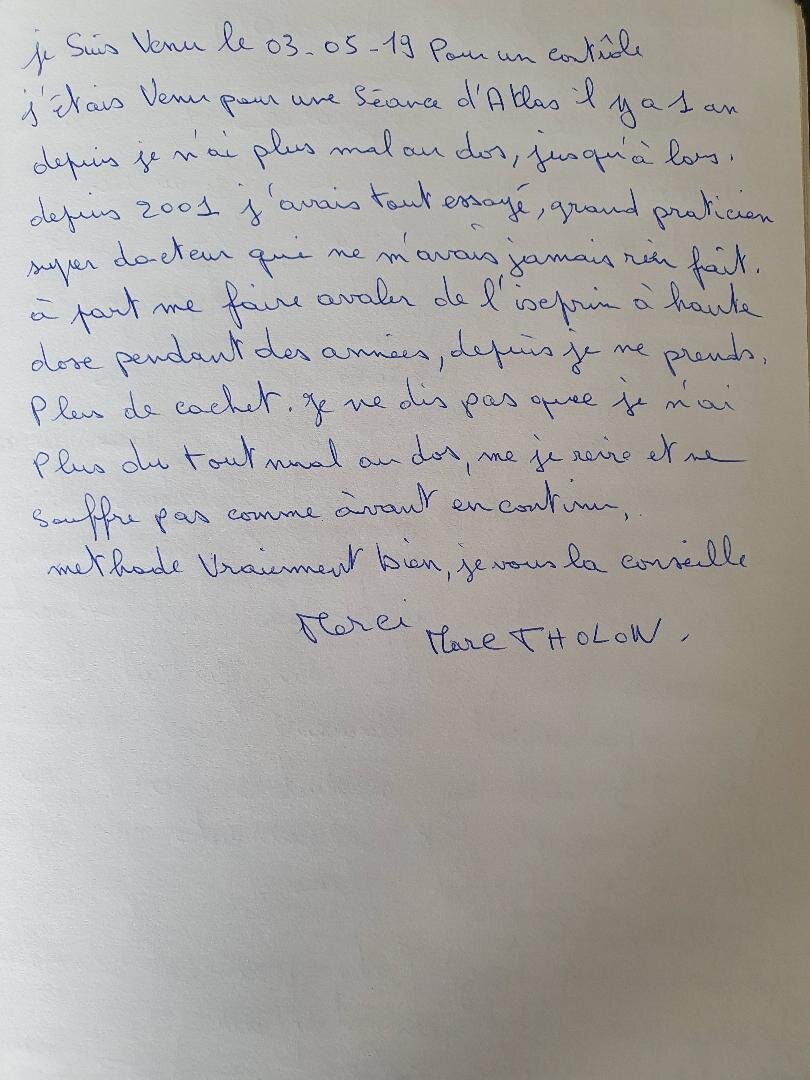 je Suis Venu le 03-05-19 Pour un contrôle
j'étais Venu pour une Séance d'Atlas il y a 1 an
depuis je n'ai plus mal au dos, jusqu'à lors.
depuis 2001 j'avais tout essayé, grand praticien
super docteur qui ne m'avais jamais rien fait.
à part me faire avaler de l'iseprin à haute
dose pendant des années, depuis je ne prends.
Plus de cachet. Je ne dis pas que je n'ai
Plus du tout mal au dos, me je revire et ne
souffre pas comme àvant en continu,
methode Vraiement bien, je vous la conseille
Merci Marc THOLON.